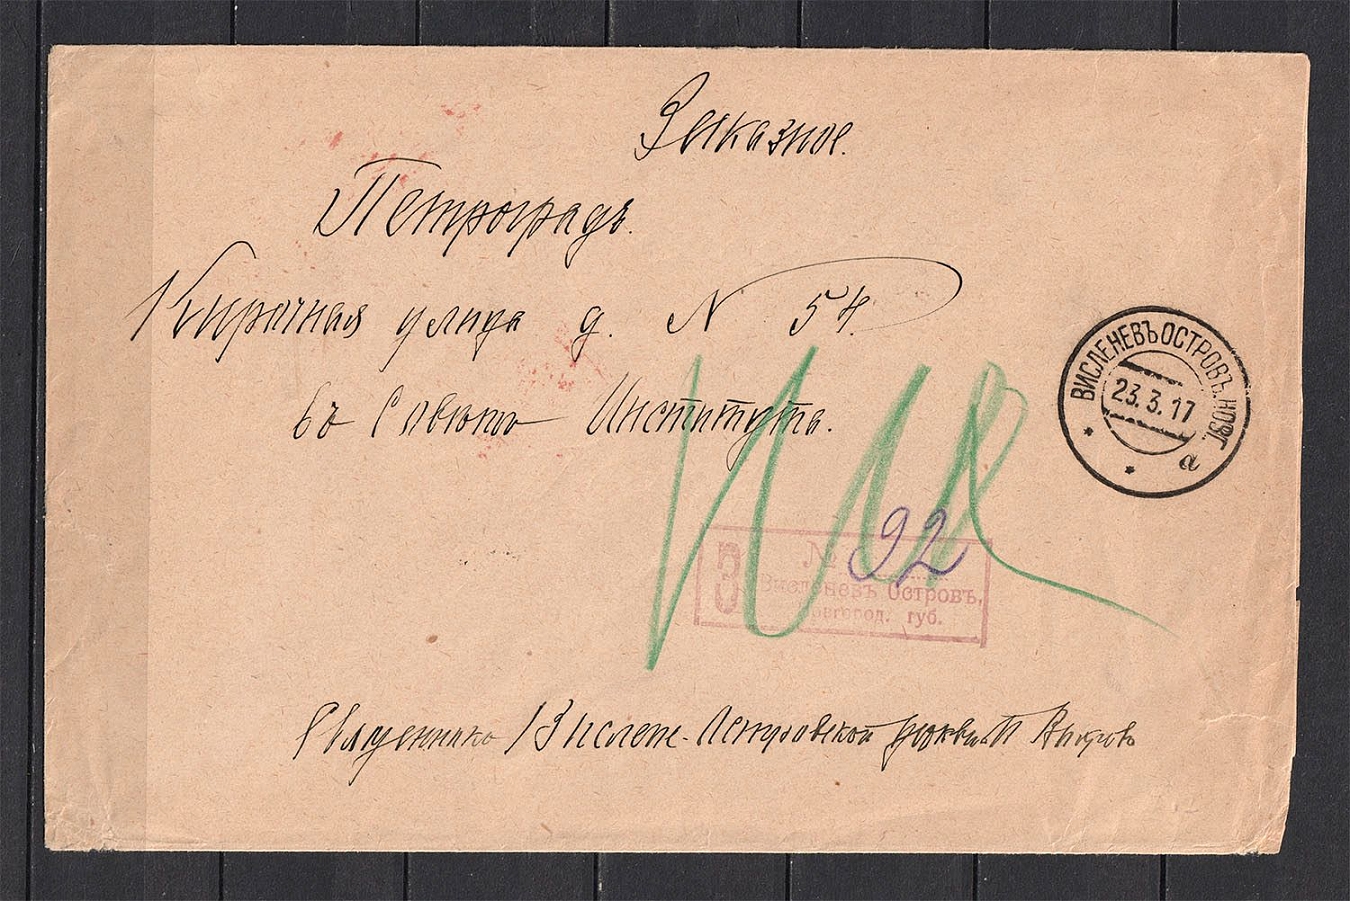 Заказное.
Петроградъ.
Кирочная улица д. N 54.
въ Советъ Института.
ВИСЛЕНЕВЪ ОСТРОВЪ. НОВГ.
23.3.17
а
З
№ 92
Висленевъ Островъ,
Новгород. губ.
Священника Вислене-Островской церкви П